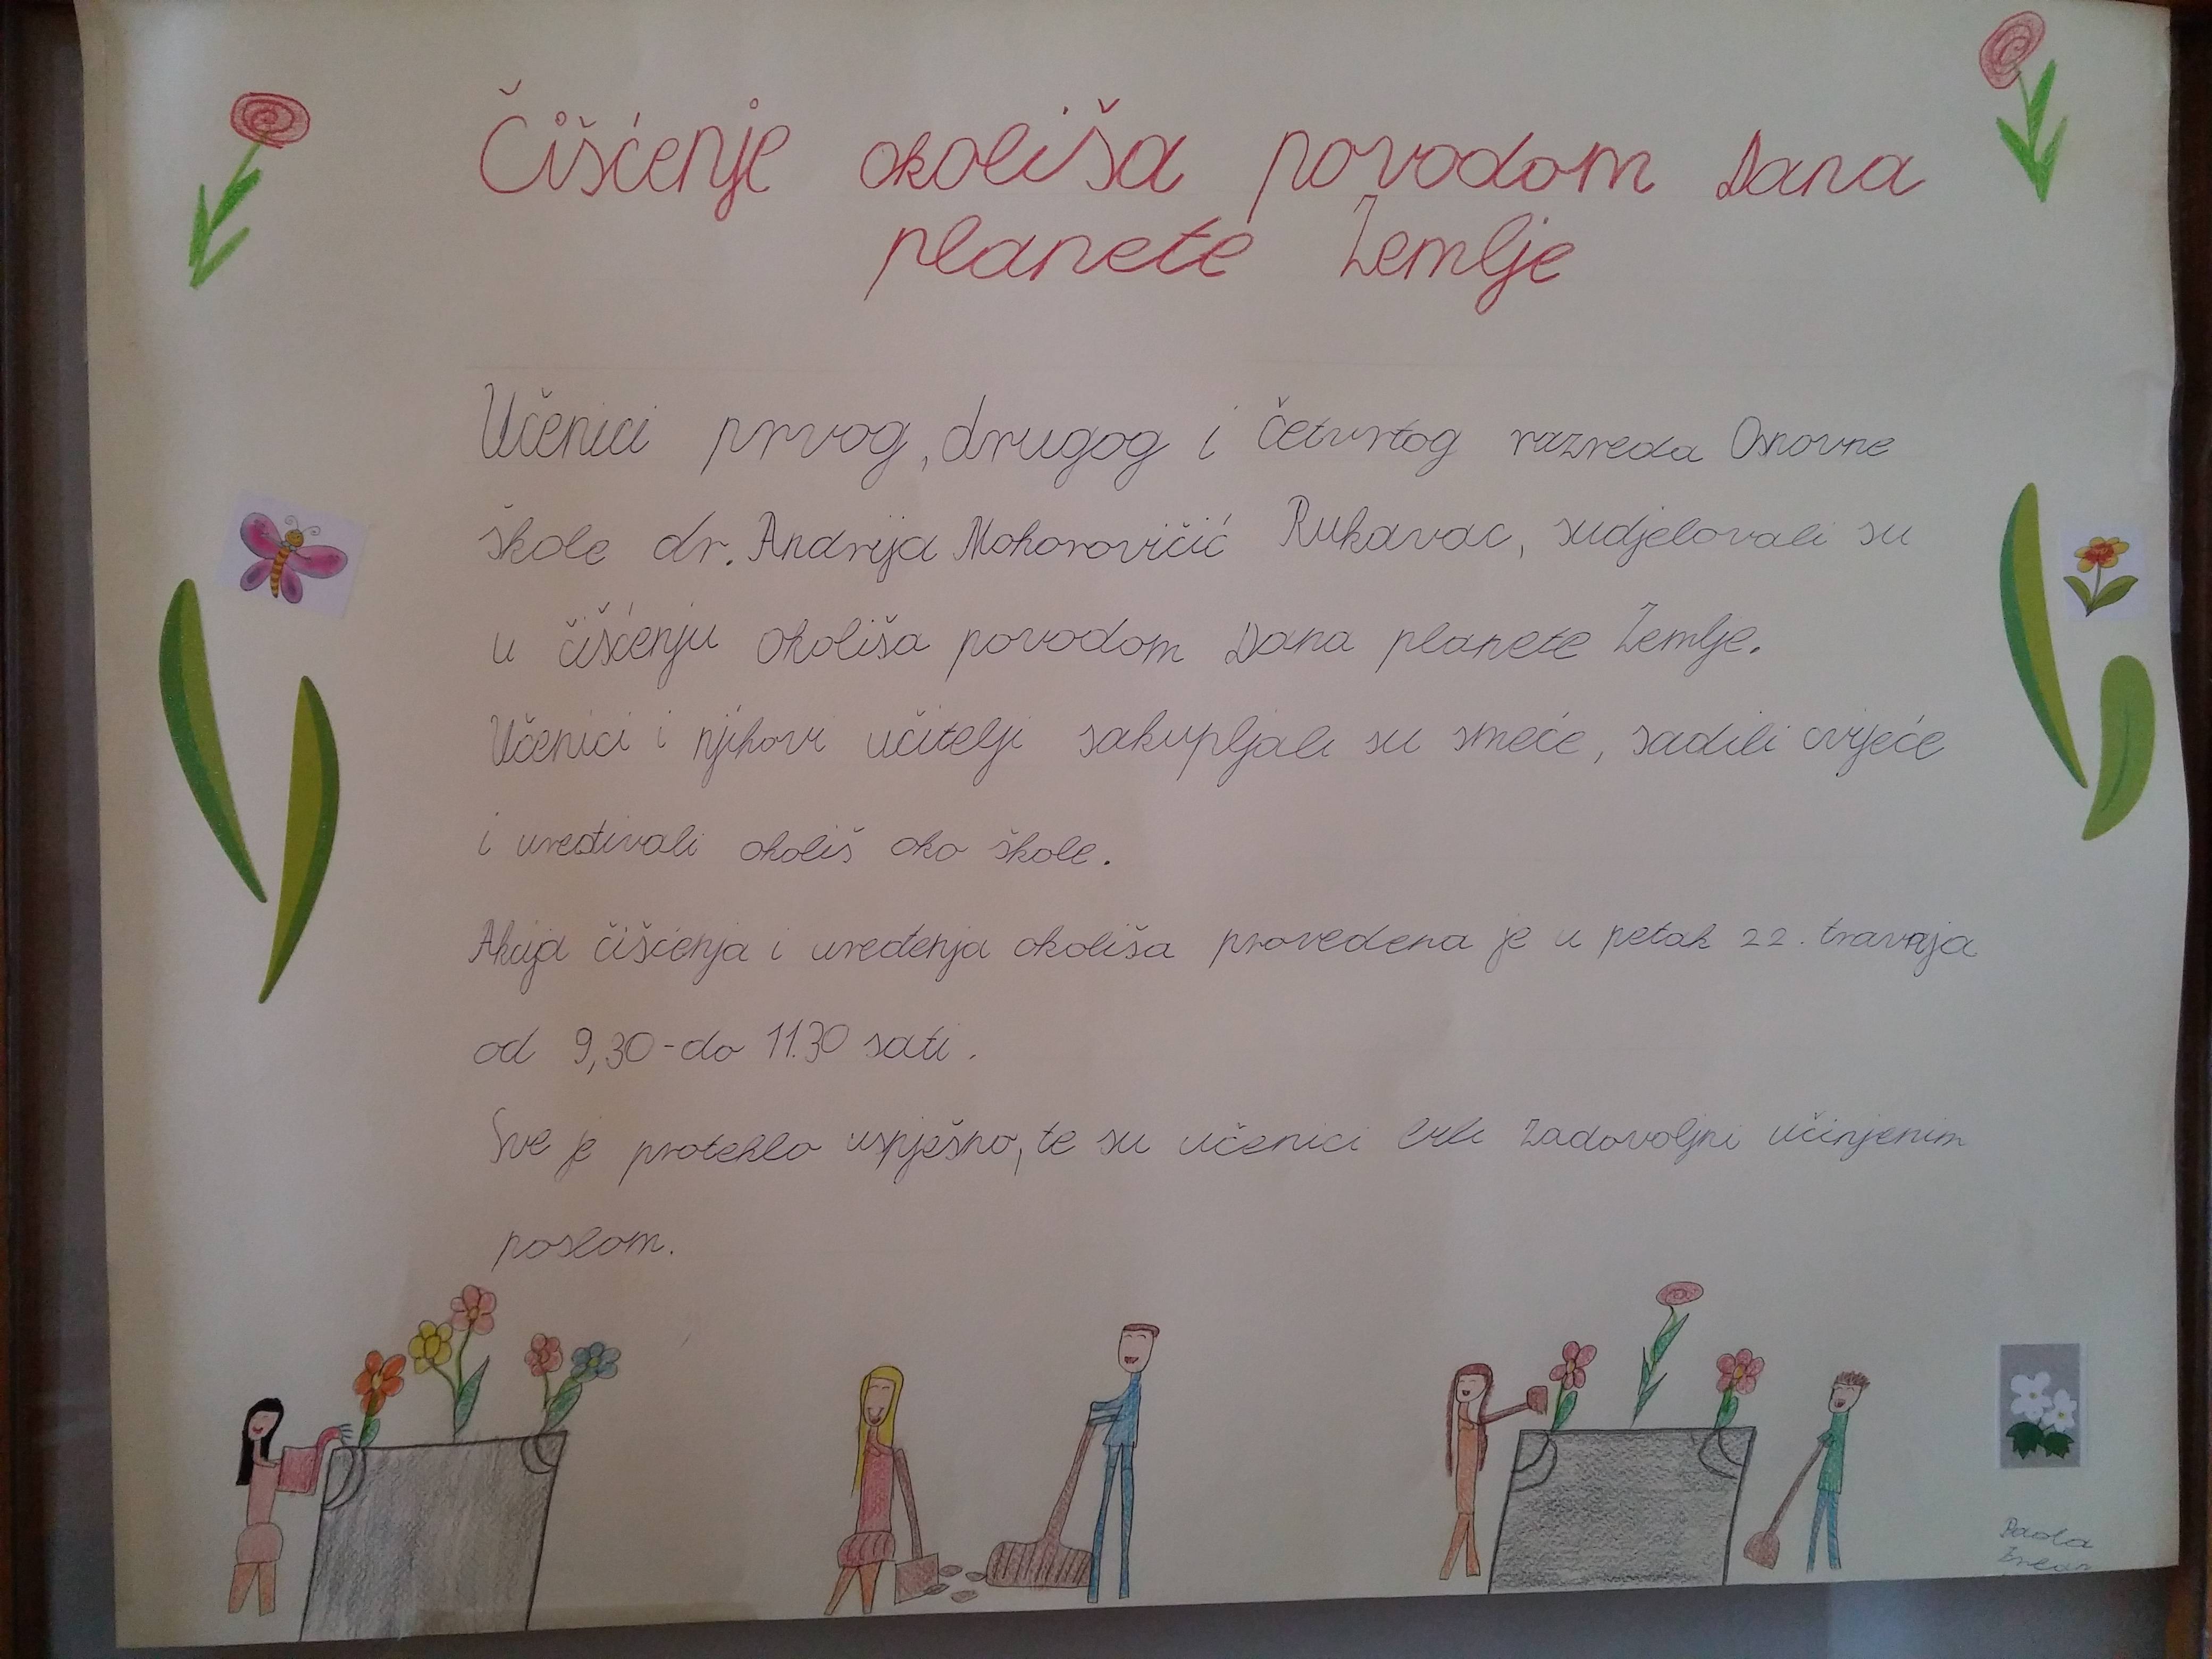 Čišćenje okoliša povodom Dana
planete Zemlje
Učenici prvog, drugog i četvrtog razreda Osnovne
škole dr. Andrija Mohorovičić Rukavac, sudjelovali su
u čišćenju okoliša povodom Dana planete Zemlje.
Učenici i njihovi učitelji sakupljali su smeće, sadili cvijeće
i uređivali okoliš oko škole.
Akcija čišćenja i uređenja okoliša provedena je u petak 22. travnja
od 9,30-do 11.30 sati.
Sve je proteklo uspješno, te su učenici bili zadovoljni učinjenim
poslom.
Paola